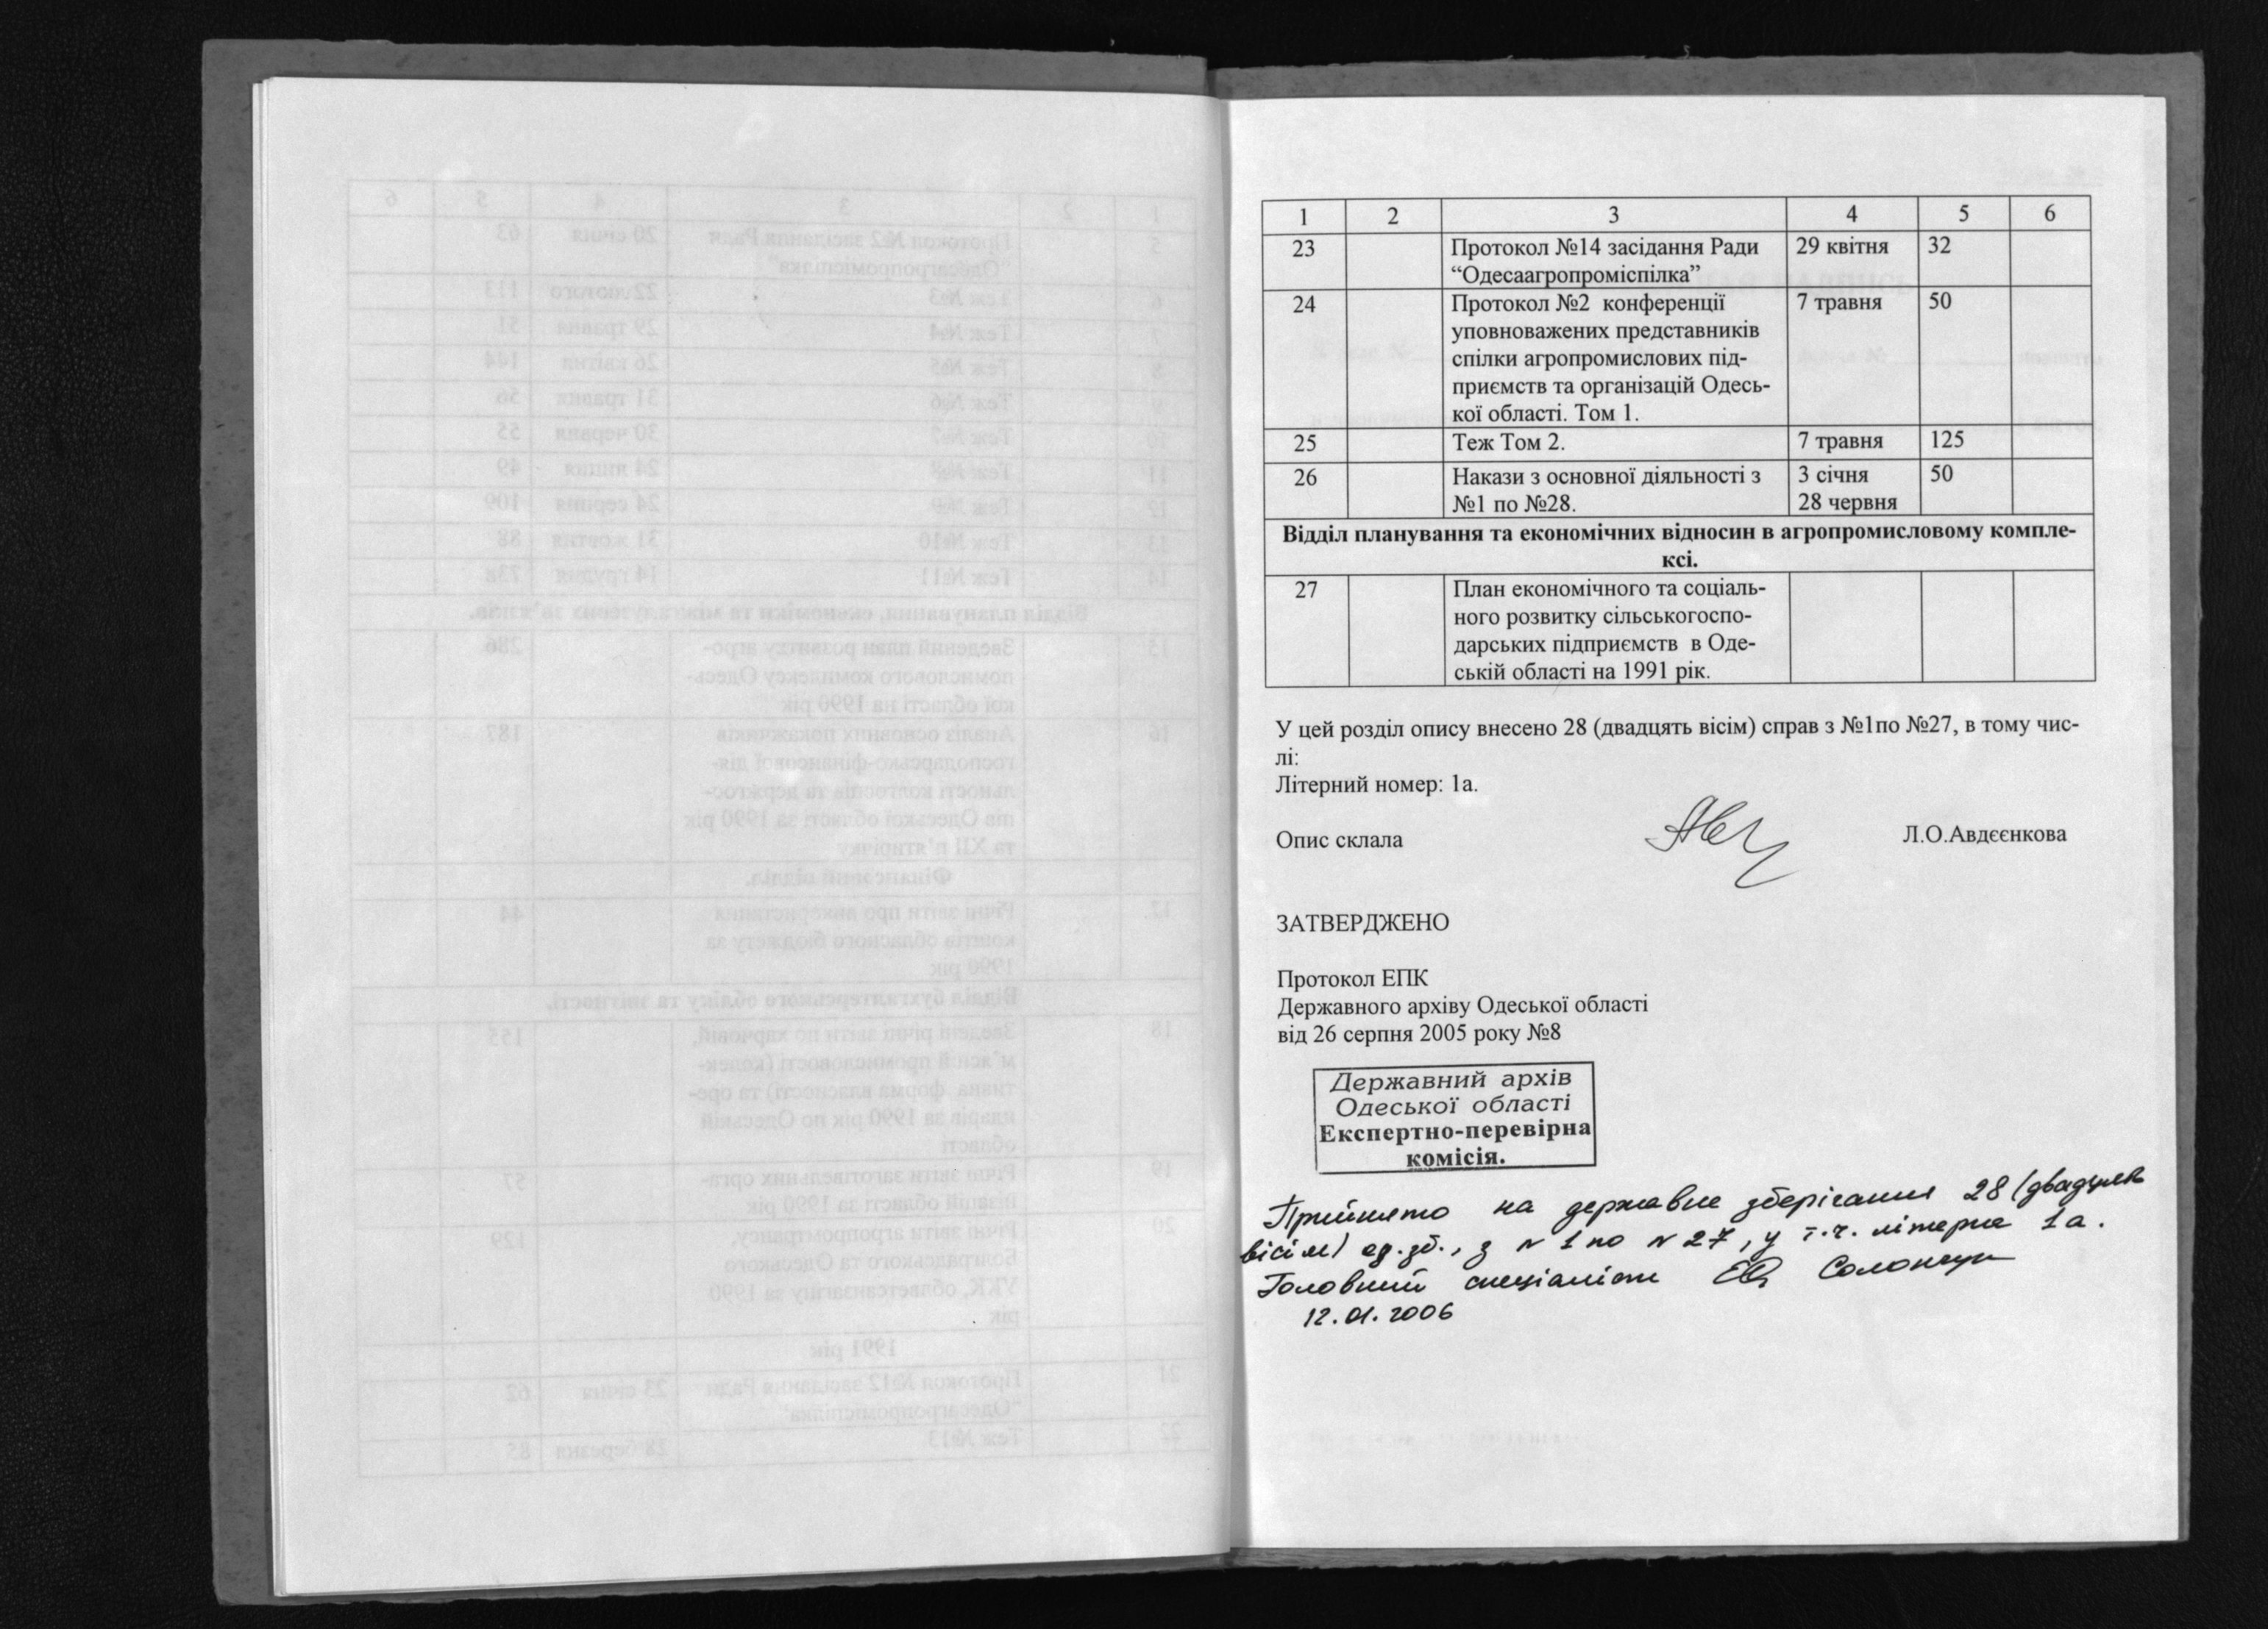 1 2 3 4 5 6
23 Протокол №14 засідання Ради 29 квітня 32
“Одесаагропроміспілка”
24 Протокол №2 конференції 7 травня 50
уповноважених представників
спілки агропромислових під-
приємств та організацій Одесь-
кої області. Том 1.
25 Теж Том 2. 7 травня 125
26 Накази з основної діяльності з 3 січня 50
№1 по №28. 28 червня
Відділ планування та економічних відносин в агропромисловому компле-
ксі.
27 План економічного та соціаль-
ного розвитку сільськогоспо-
дарських підприємств в Оде-
ській області на 1991 рік.
У цей розділ опису внесено 28 (двадцять вісім) справ з №1по №27, в тому чис-
лі:
Літерний номер: 1а.
Опис склала Л.О.Авдєєнкова
ЗАТВЕРДЖЕНО
Протокол ЕПК
Державного архіву Одеської області
від 26 серпня 2005 року №8
Державний архів
Одеської області
Експертно-перевірна
комісія.
Прийнято на державне зберігання 28 (двадцять
вісім) од.зб., з № 1 по № 27, у т.ч. літерна 1а.
Головний спеціаліст
12.01.2006